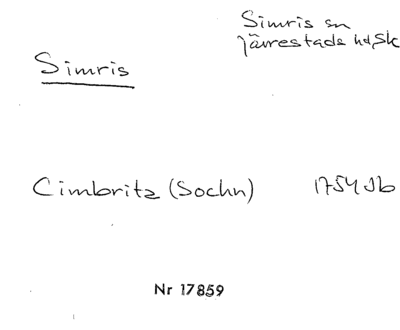 Simris sn
Järrestads hd, Sk
Simris
Cimbritz (Sochn) 1754 Jb
Nr 17859